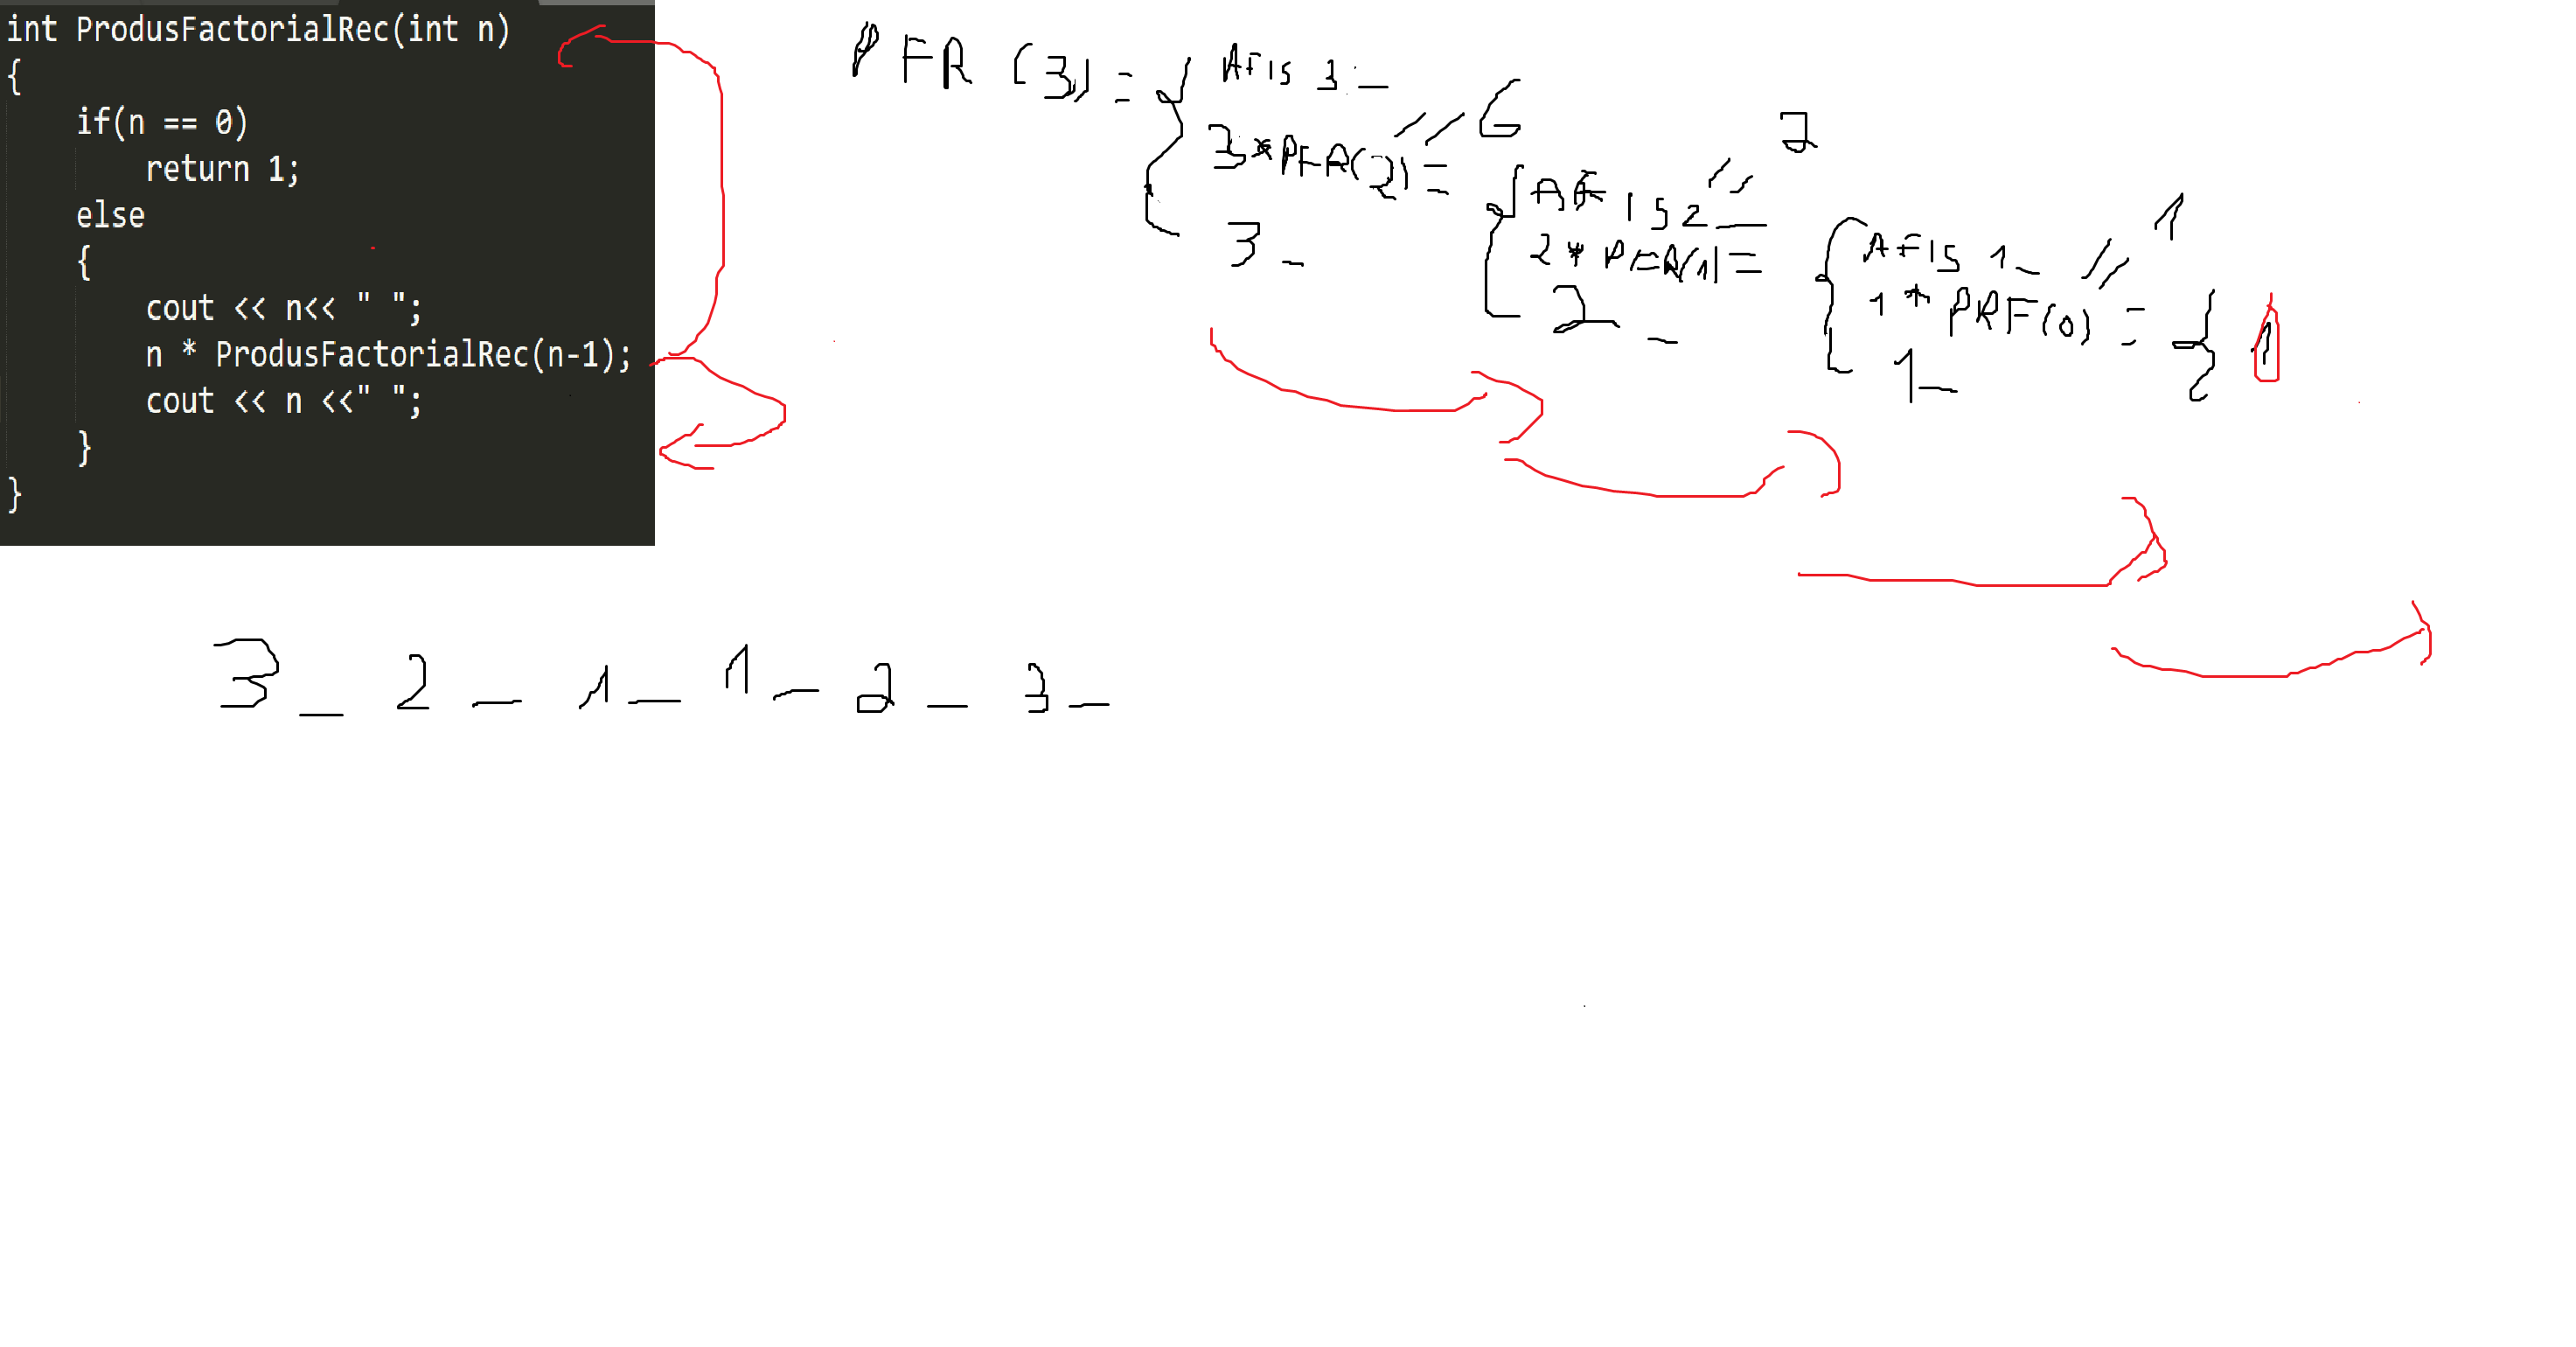 int ProdusFactorialRec(int n)
{
if(n == 0)
return 1;
else
{
cout << n<< " ";
n * ProdusFactorialRec(n-1);
cout << n <<" ";
}
}
PFR (3) = { Afis 3 _
3*PFR(2) = // 6
3 _
{ Afis 2 _
2 * PFR(1) = // 2
2 _
{ Afis 1 _
1 * PRF(0) = // 1
1 _
{ 1
3 _ 2 _ 1 _ 1 _ 2 _ 3 _